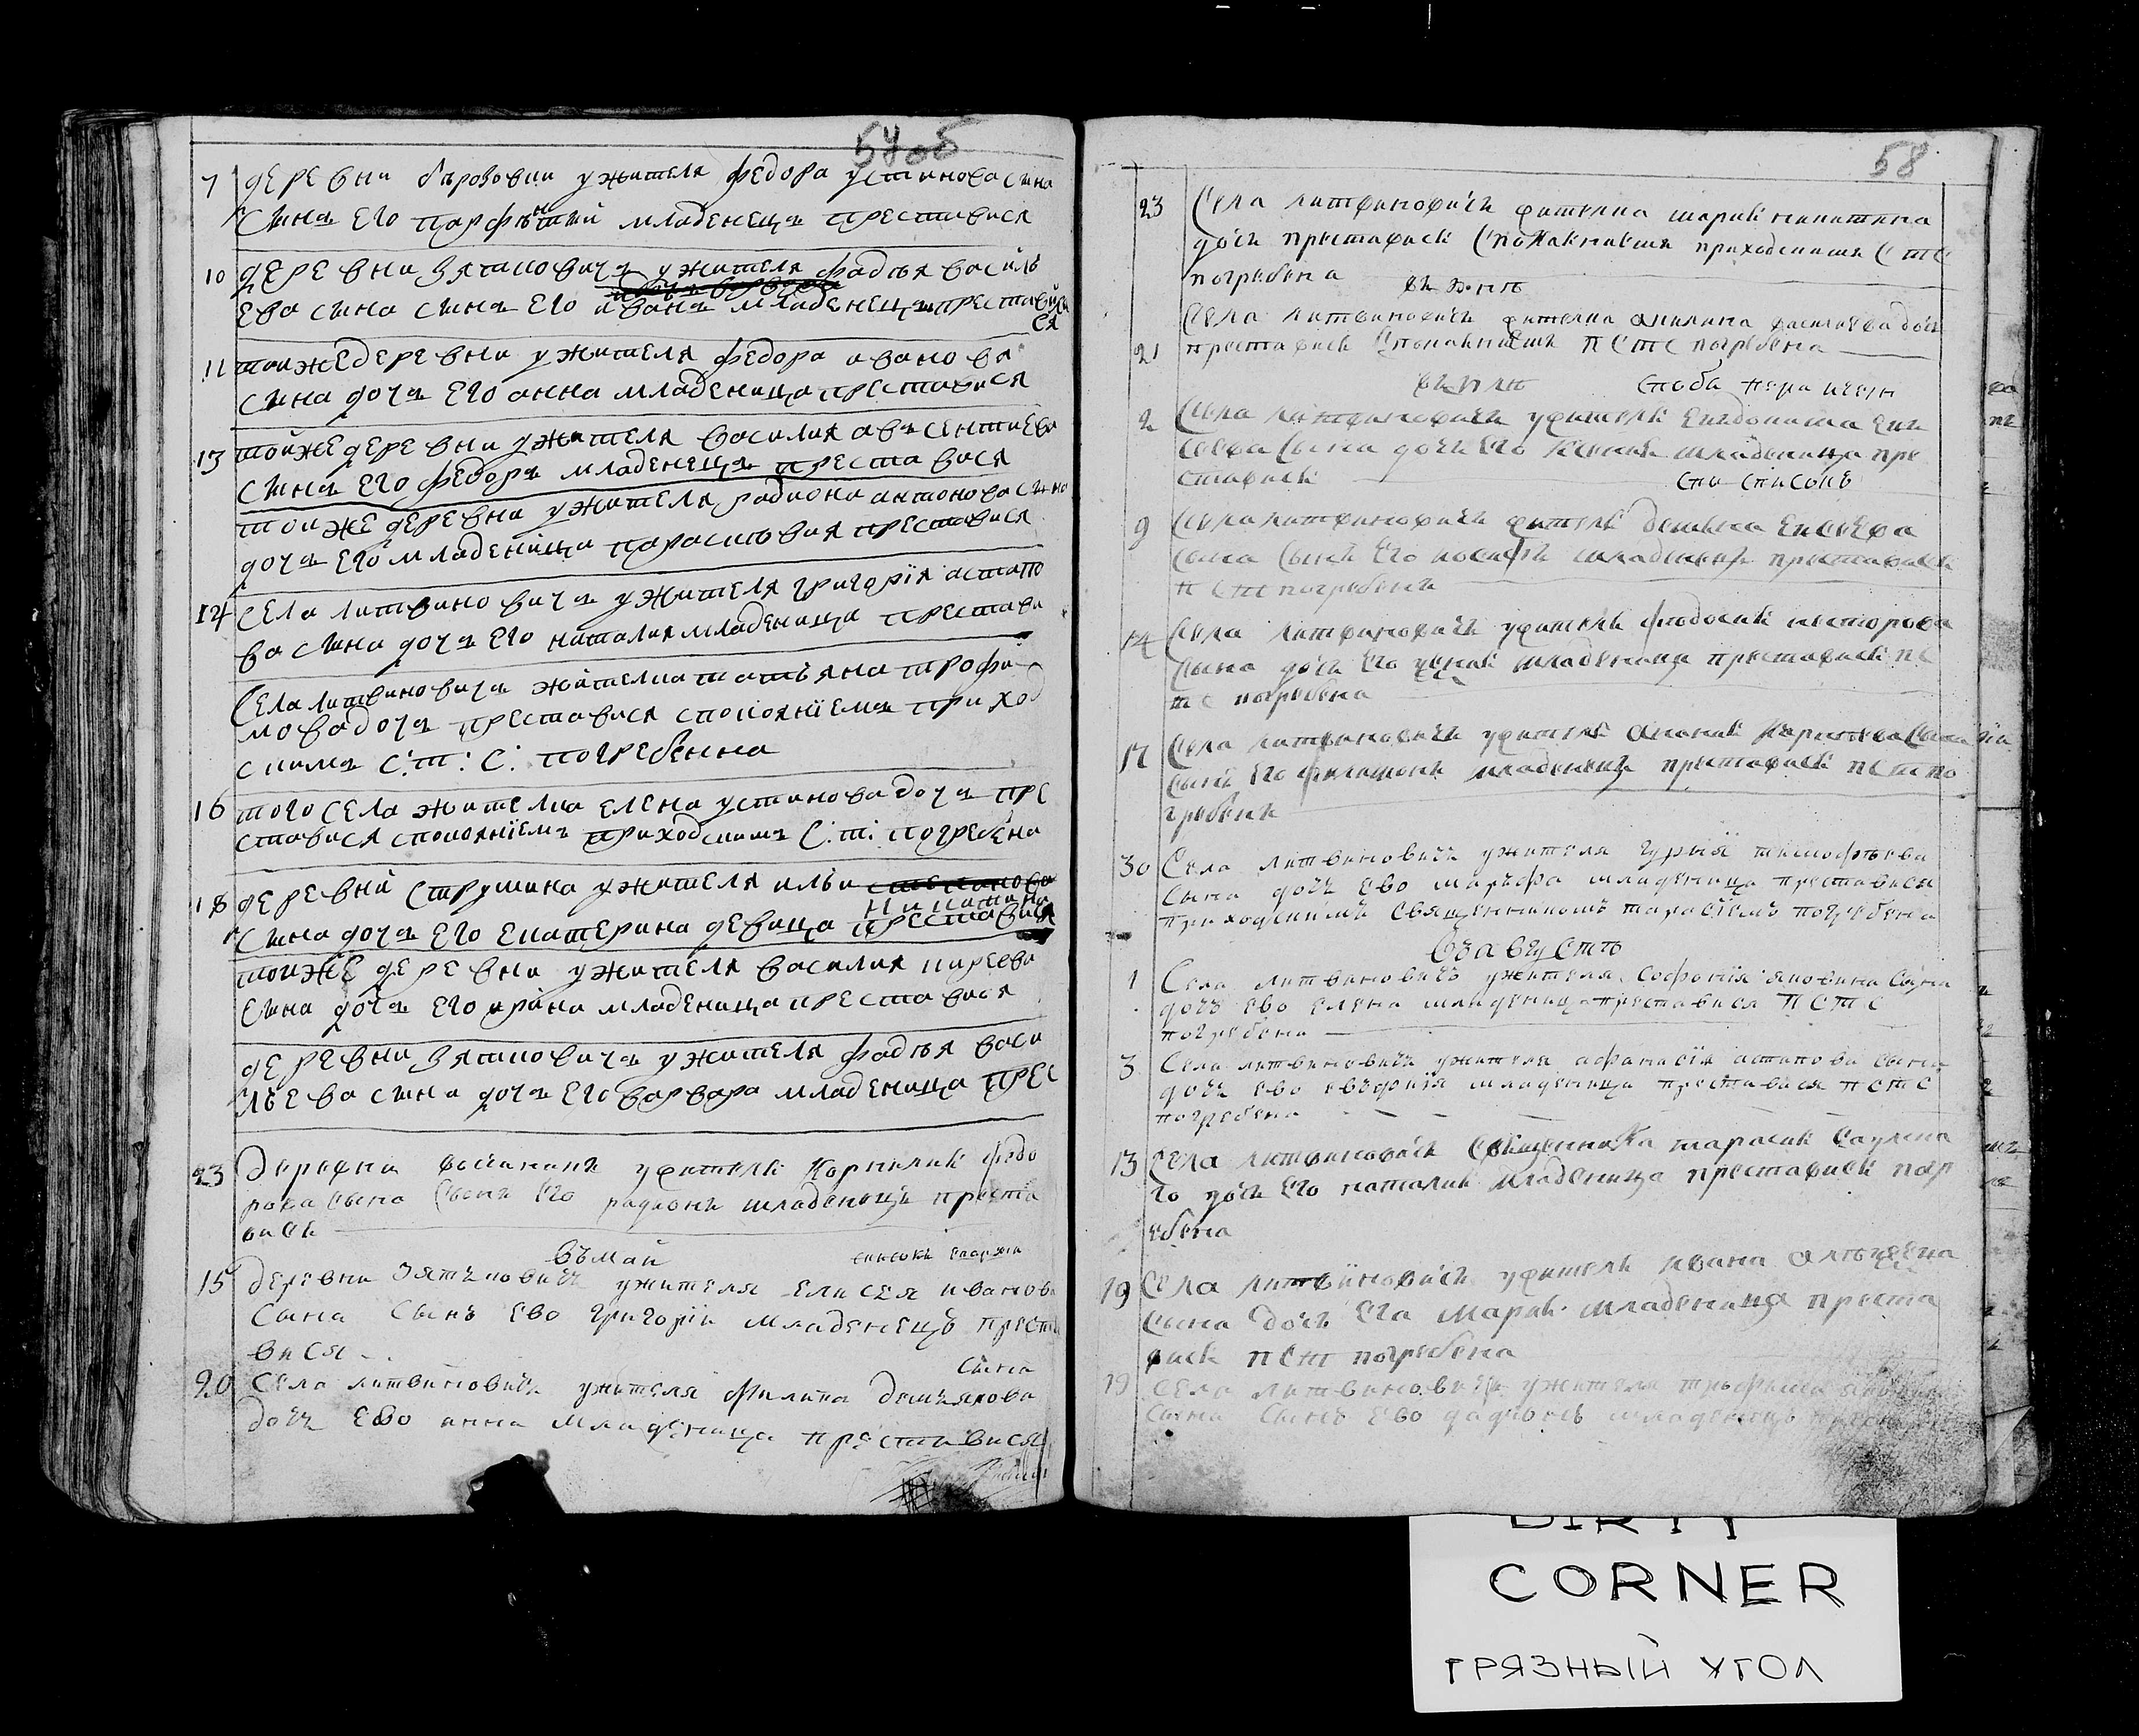 57об
7 деревни бърозовки ужителя федора устинова сина
синъ его парфѣний младенецъ преставися
10 деревни зятковичъ ужителя фадѣя василь
ева сина синъ его иванъ младенецъ преставил
ся
11 тойжедеревни ужителя федора иванова
сина дочъ его анна младеница преставися
13 тойже деревни ужителя василия авъсентиева
синъ его федоръ младенецъ преставися
тойже деревни ужителя радиона антонова сина
дочъ его младеница парасковия преставися
14 села литвиновичъ ужителя григория астапо
ва сина дочъ его наталия младеница престави
Села литвиновичъ жителка татъяна трофи
мова дочъ преставися спокояниемъ приход
скимъ С: т: С: погребенна
16 того села жителка елена устинова дочъ пре
ставися спокояниемъ приходскимъ С: т: погребена
18 деревни Струмина ужителя ильи
никитина
сина дочъ его екатерина девица преставися
тойже деревни ужителя василия кирѣева
сина дочъ его ирина младеница преставися
деревни зятковичъ ужителя фадѣя васи
лъева сина дочъ его варвара младеница прес
23 деревни ужителя Корнилия федо
рова сына сынъ его радионъ младенецъ преста
вися
въмаи
15 деревни зятъковичъ ужителя елисея иванова
Сына Сынъ ево григорiи младенецъ преста
вися
20 Села литвиновичъ ужителя филипа демъянова
сына
дочъ ево анна младеница преставися
58
23 Села литвиновичъ жителка мария никитина
дочъ преставися споканиемъ приходскимъ С т С
погребена
въ юнѣ
Села литвиновичъ жителка акилина василиева дочъ
21 преставися споканиемъ П С т С погребена
въ июлѣ
2 Села литвиновичъ ужителя евъдокима ев
сеева сына дочъ его Ксения младеница пре
ставися
9 Села литвиновичъ жителя демьяна евсѣева
сына сынъ его иосифъ младенецъ преставися
П С т погребенъ
14 Села литвиновичъ ужителя феодосия несторова
сына дочъ его младеница преставися П С
т С погребена
17 Села литвиновичъ ужителя анания сына
сынъ его филимонъ младенецъ преставися П С т по
гребенъ
30 Села литвиновичъ ужителя гурыя тимофѣева
Сына дочъ ево маръфа младеница преставися
приходскимъ священникомъ тарасiемъ погребена
въ августѣ
1 Села литвиновичъ ужителя софония яковина сына
дочъ ево елена младеница преставися П С т С
погребена
3 Села литвиновичъ ужителя афанасiя астапова сына
дочъ ево евъфиiя младеница преставися П С т С
погребена
13 Села литвиновичъ священника тарасия саулина
го дочъ его наталия младеница преставися погр
ебена
19 Села литвиновичъ ужителя ивана алѣѯеева
сына дочъ его мария младеница преста
вися П С т погребена
19 Села литвиновичъ ужителя трофима
сына сынъ ево младенецъ
DIRTY
CORNER
ГРЯЗНЫЙ УГОЛ